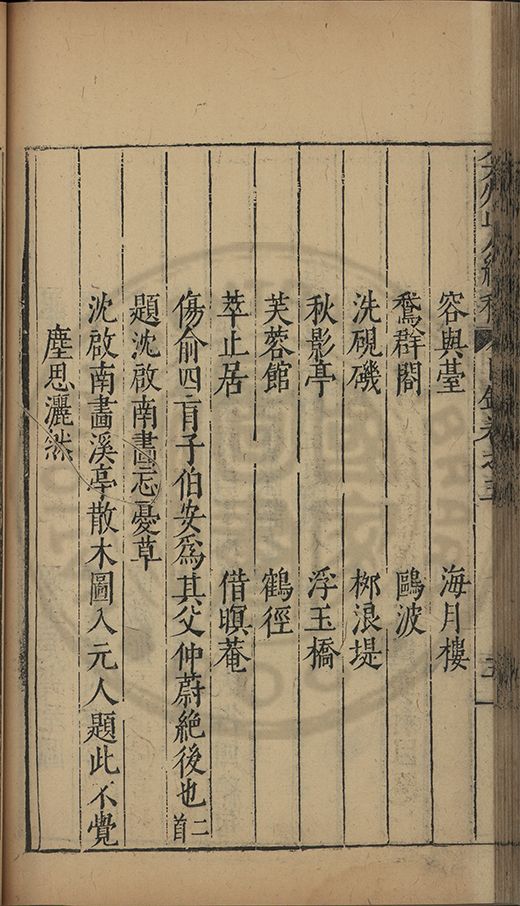 容與臺 海月樓
鵞群閣 鷗波
洗硯磯 栁浪堤
秋影亭 浮玉橋
芙蓉館 鶴徑
萃止居 借暝菴
傷俞四肓子伯安為其父仲蔚絶後也二首
題沈啟南畫忘憂草
沈啟南畫溪亭散木圖入元人題此不覺
塵思灑然